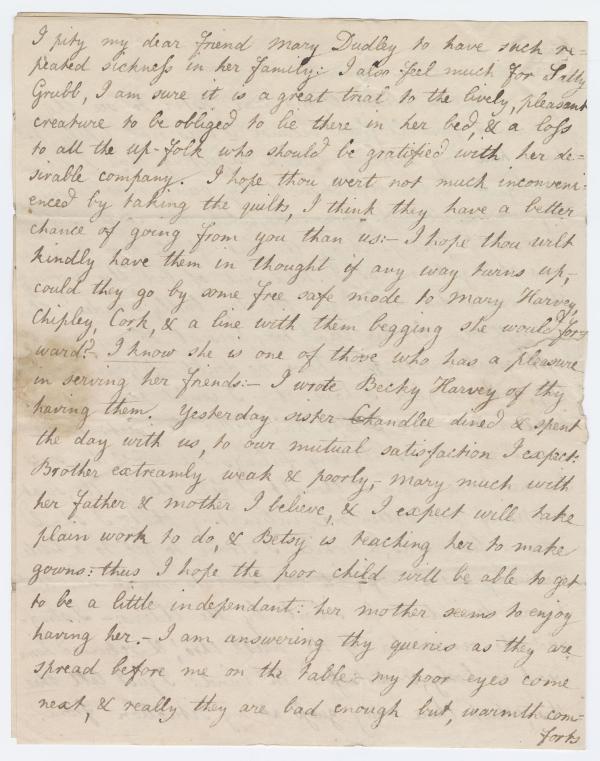 I pity my dear friend Mary Dudley to have such re=
peated sickness in her family: I also feel much for Sally
Grubb, I am sure it is a great trial to the lively, pleasant
creature to be obliged to lie there in her bed, & a loss
to all the up-folk who should be gratified with her de=
sirable company. I hope thou wert not much inconveni=
enced by taking the quilts, I think they have a better
chance of going from you than us:- I hope thou wilt
kindly have them in thought if any way turns up,-
could they go by some free safe mode to Mary Harvey,
Chipley, Cork, & a line with them begging she would for=
ward?- I know she is one of those who has a pleasure
in serving her friends:- I wrote Becky Harvey of thy
having them. Yesterday sister Chandlee dined & spent
the day with us, to our mutual satisfaction I expect:
Brother extreamly weak & poorly,- Mary much with
her father & mother I believe, & I expect will take
plain work to do, & Betsy is teaching her to make
gowns: thus I hope the poor child will be able to get
to be a little independant: her mother seems to enjoy
having her.- I am answering thy queries as they are
spread before me on the table: my poor eyes come
next, & really they are bad enough but, warmth com=
forts